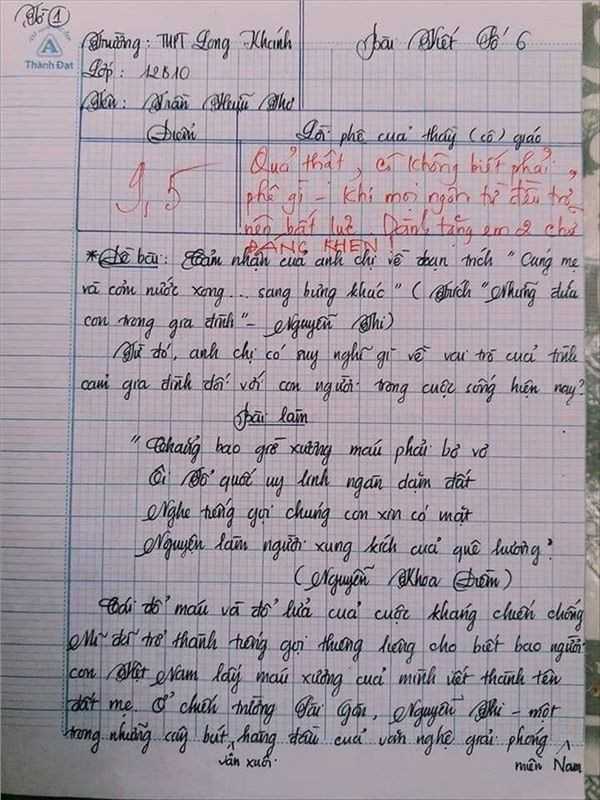 Tờ 1
Thành Đạt
Trường: THPT Long Khánh
Bài Viết Số 6
Lớp: 12B10
Tên: Trần Hữu Thơ
Điểm
Lời phê của thầy (cô) giáo
9,5
Quả thật, cô không biết phải
phê gì - Khi mọi ngôn từ đều trở
nên bất lực. Dành tặng em 2 chữ
ĐÁNG KHEN!
* Đề bài: Cảm nhận của anh chị về đoạn trích "Cúng mẹ
và cơm nước xong... sang bưng khác" (Trích "Những đứa
con trong gia đình" - Nguyễn Thi)
Từ đó, anh chị có suy nghĩ gì về vai trò của tình
cảm gia đình đối với con người trong cuộc sống hiện nay?
Bài làm
"Chẳng bao giờ xương máu phải bơ vơ
Ôi Tổ quốc uy linh ngàn dặm đất
Nghe tiếng gọi chúng con xin có mặt
Nguyện làm người xung kích của quê hương"
(Nguyễn Khoa Điềm)
Cái đổ máu và đổ lửa của cuộc kháng chiến chống
Mĩ đã trở thành tiếng gọi thương lương cho biết bao người
con Việt Nam lấy máu xương của mình viết thành tên
đất mẹ. Ở chiến trường Sài Gòn, Nguyễn Thi - một
trong những cây bút văn xuôi hàng đầu của văn nghệ giải phóng
miền Nam